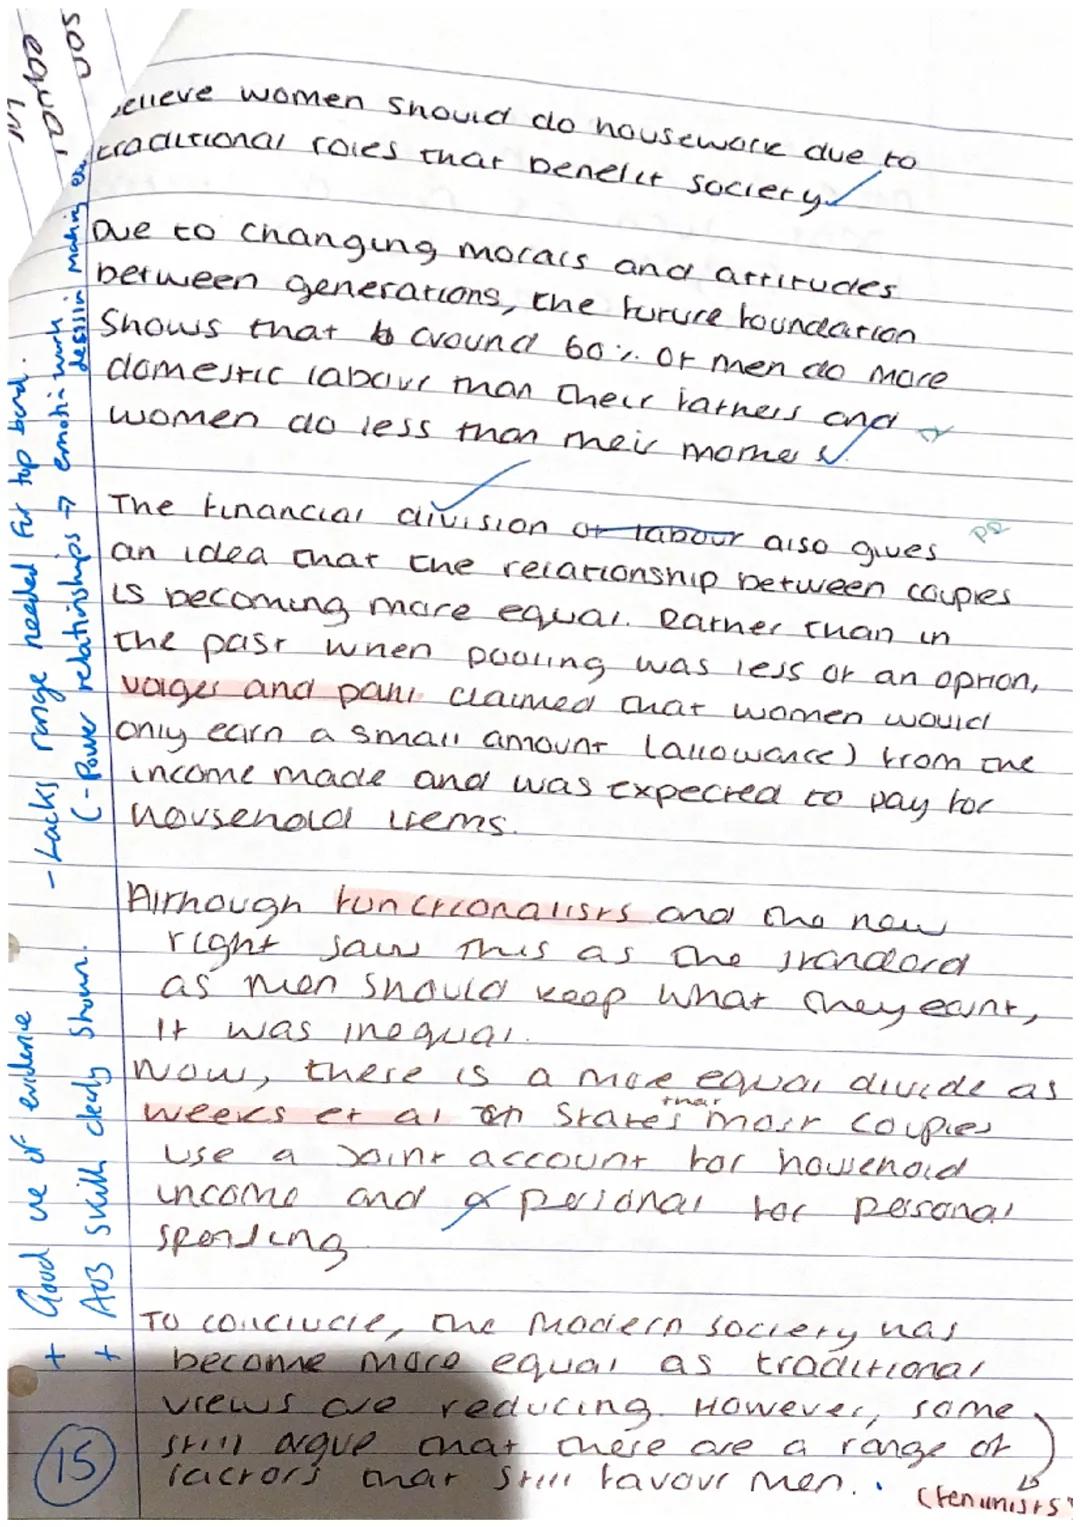 believe women should do housework due to
traditional roles that benefit society.
Due to changing morals and attitudes
between generations, the future foundation
Shows that around 60% of men do more
domestic labour than their fathers and
women do less than their mothers
The financial division of labour also gives
an idea that the relationship between couples
is becoming more equal. Rather than in
the past when pooling was less of an option,
voger and pahl claimed that women would
only earn a small amount (allowance) from the
income made and was expected to pay for
household items.
Although functionalists and the new
right saw this as the standard
as men should keep what they earnt,
it was inequal.
Now, there is a more equal divide as
weeks et al states that most couples
use a joint account for household
income and a personal for personal
spending
To conclude, the modern society has
become more equal as traditional
views are reducing. However, some
still argue that there are a range of
factors that still favour men.
(feminists)
P2
- Lacks range needed for top band.
(- Power relationships → emotion work
desision making
+ Good use of evidence
+ AO3 skills clearly shown.
15